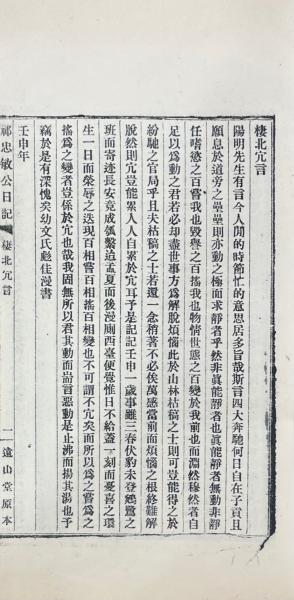 棲北冗言
陽明先生有言今人閒的時節忙的意思居多旨哉斯言四大奔馳何日自在子貢且
願息於道旁之壘壘則亦動之極而求靜者乎然非眞能靜者也眞能靜者無動非靜
任嗜慾之百嘗我也毀譽之百搖我也物情世態之百變於我前也而淵然穆然者自
足以為動之君若必却盡世事方為解脫煩惱此於山林枯稿之士則可豈能得之於
紛馳之官局乎且夫枯稿之士若還一念稍著不必俟萬感當前而煩惱之根終難解
脫然則冗豈能累人人自累於冗耳予是記記壬申一歲事雖三春伏豹未登鵷鷺之
班而寄迹長安竟成傀儡迨孟夏而後漫廁西臺便覺惟日不給蓋一刻而憂喜之環
生一日而榮辱之迭現百相嘗百相搖百相變也不可謂不冗矣而所以為之嘗為之
搖為之變者豈係於冗也哉我固無所以君其動而耑言惡動是止沸而揚其湯也予
竊於是有深愧矣幼文氏彪佳漫書
壬申年
祁忠敏公日記
棲北冗言
一
遠山堂原本